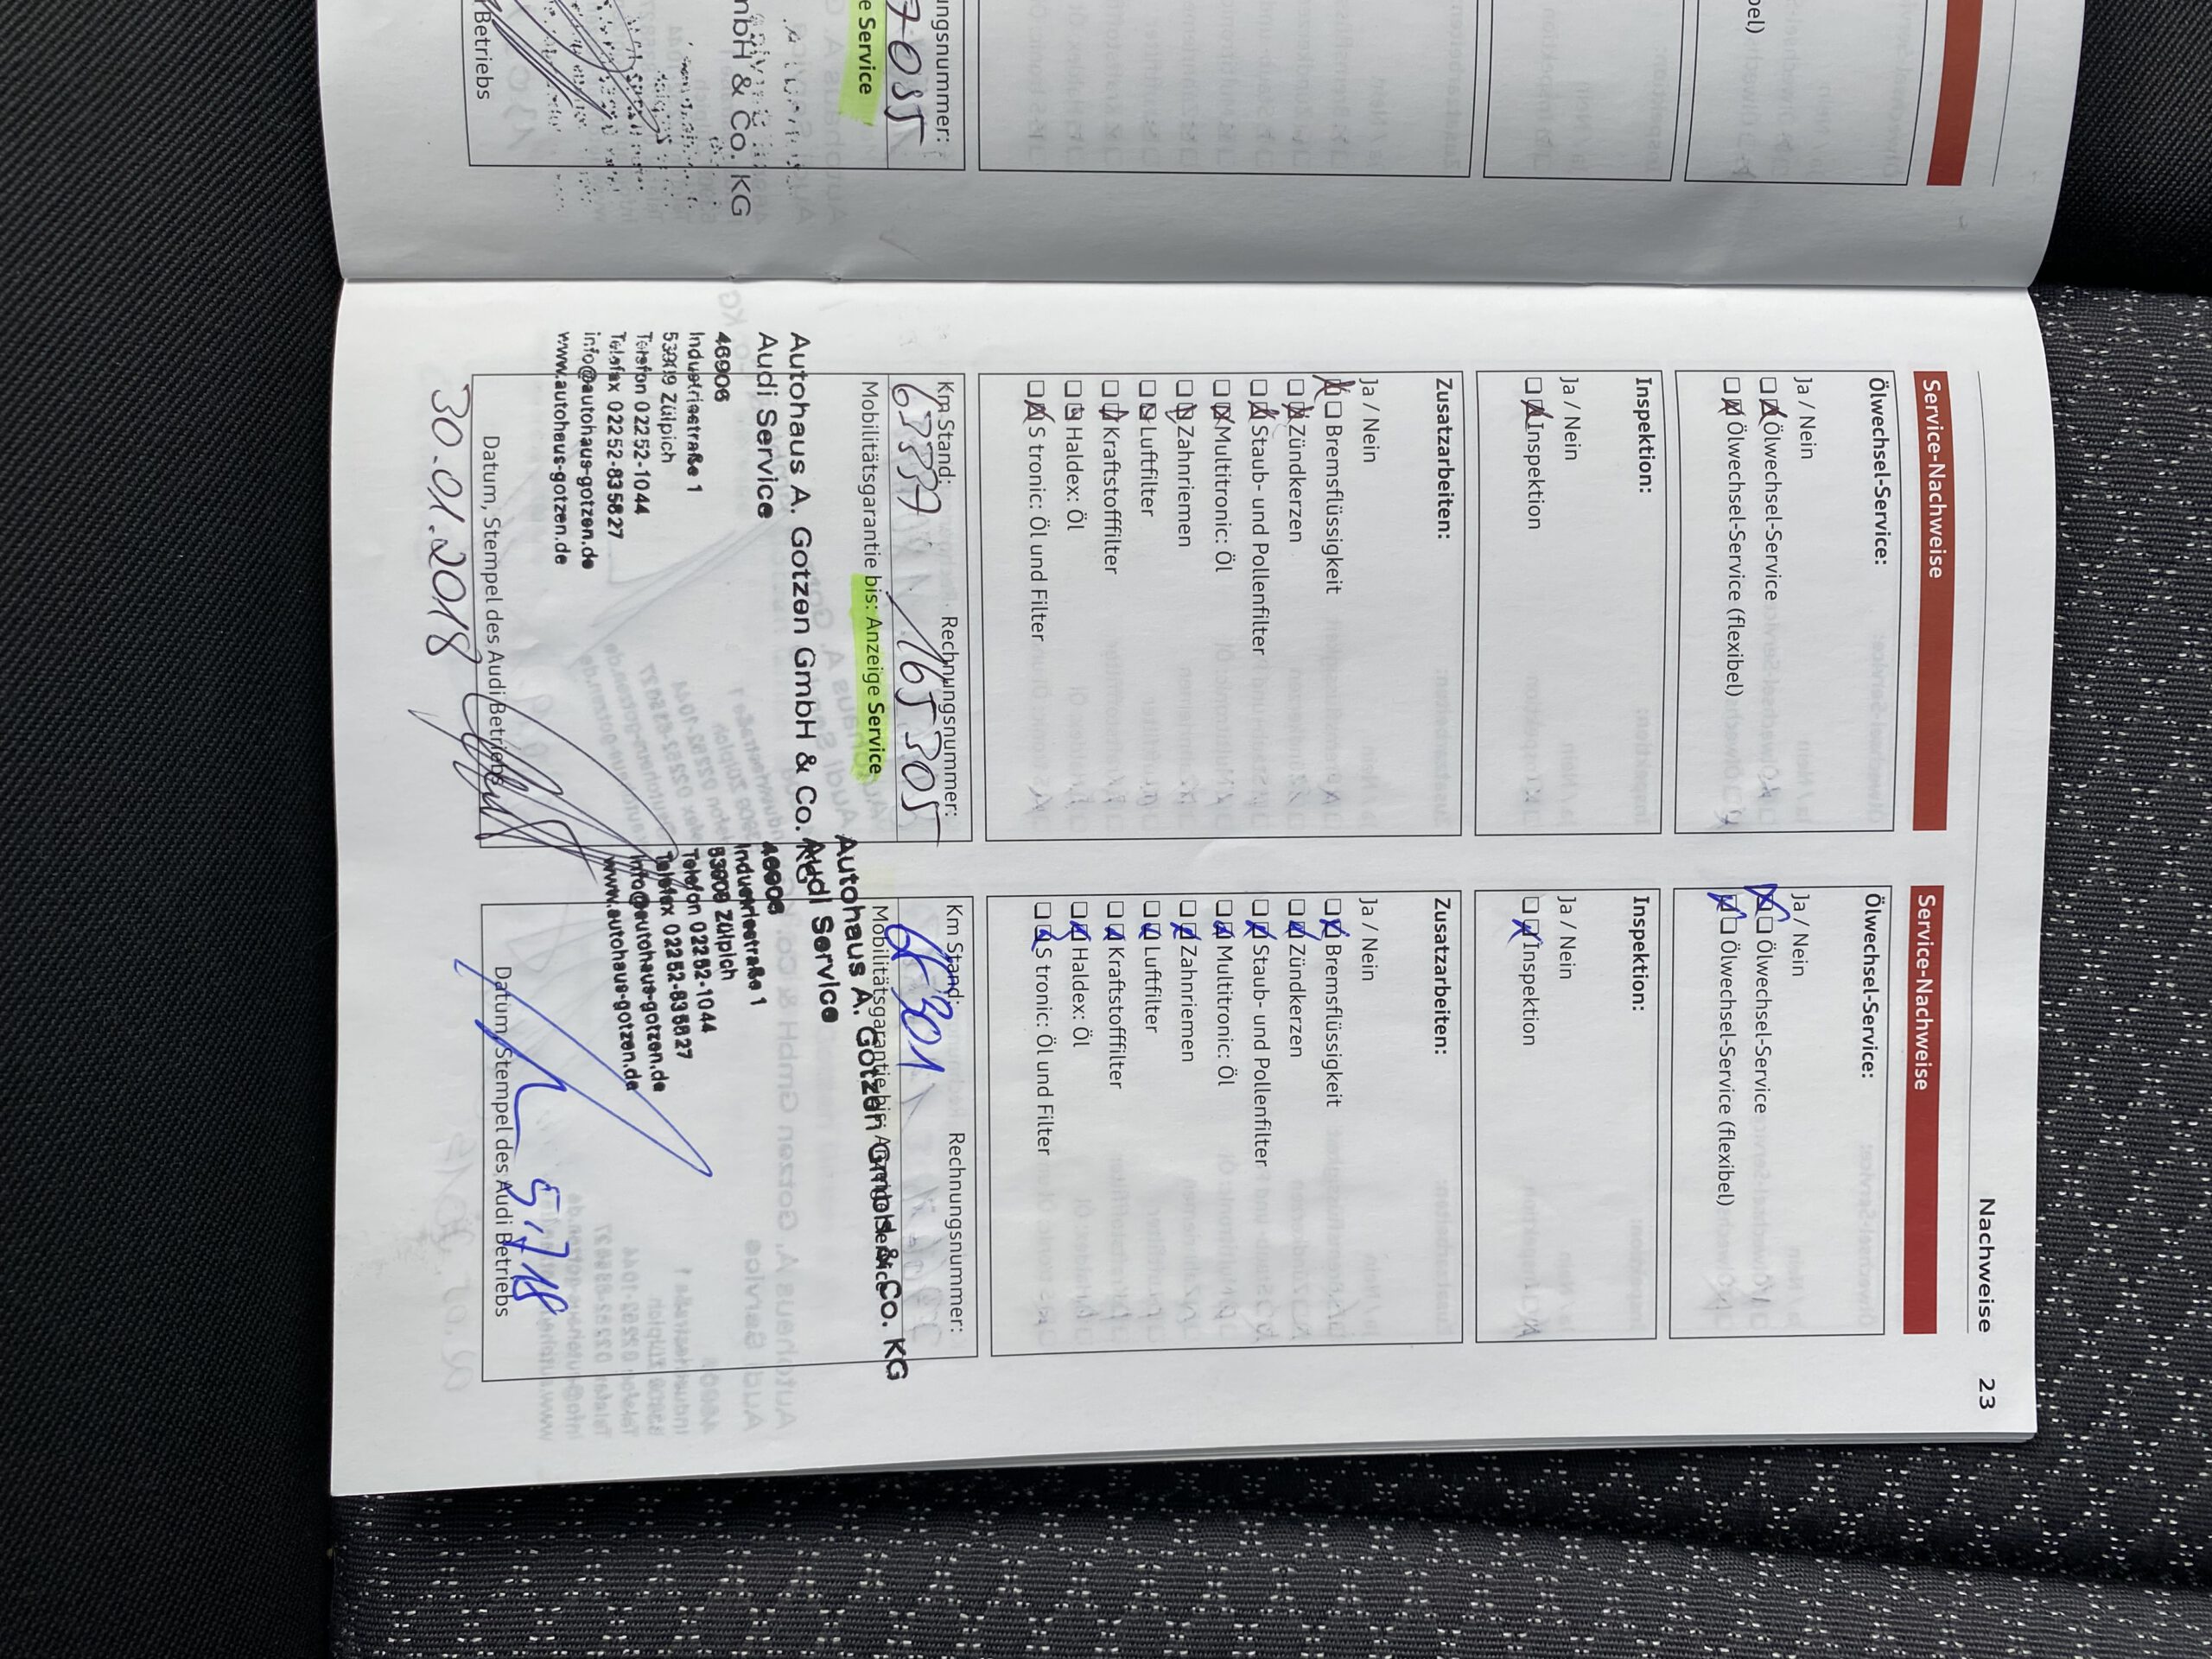 Nachweise 23
Service-Nachweise
Ölwechsel-Service:
Ja / Nein
Ölwechsel-Service
Ölwechsel-Service (flexibel)
Inspektion:
Ja / Nein
Inspektion
Zusatzarbeiten:
Ja / Nein
Bremsflüssigkeit
Zündkerzen
Staub- und Pollenfilter
Multitronic: Öl
Zahnriemen
Luftfilter
Kraftstofffilter
Haldex: Öl
S tronic: Öl und Filter
Km Stand: Rechnungsnummer:
165305
Mobilitätsgarantie bis: Anzeige Service
Autohaus A. Gotzen GmbH & Co. KG
Audi Service
46906
Industriestraße 1
53909 Zülpich
Telefon 02252-1044
Telefax 02252-835827
info@autohaus-gotzen.de
www.autohaus-gotzen.de
Datum, Stempel des Audi Betriebs
30.01.2018
Service-Nachweise
Ölwechsel-Service:
Ja / Nein
Ölwechsel-Service
Ölwechsel-Service (flexibel)
Inspektion:
Ja / Nein
Inspektion
Zusatzarbeiten:
Ja / Nein
Bremsflüssigkeit
Zündkerzen
Staub- und Pollenfilter
Multitronic: Öl
Zahnriemen
Luftfilter
Kraftstofffilter
Haldex: Öl
S tronic: Öl und Filter
Km Stand: Rechnungsnummer:
Mobilitätsgarantie bis: Anzeige Service
Autohaus A. Gotzen GmbH & Co. KG
Audi Service
46906
Industriestraße 1
53909 Zülpich
Telefon 02252-1044
Telefax 02252-835827
info@autohaus-gotzen.de
www.autohaus-gotzen.de
5.7.18
Datum, Stempel des Audi Betriebs
ungsnummer:
7085
e Service
mbH & Co. KG
Betriebs
bel)